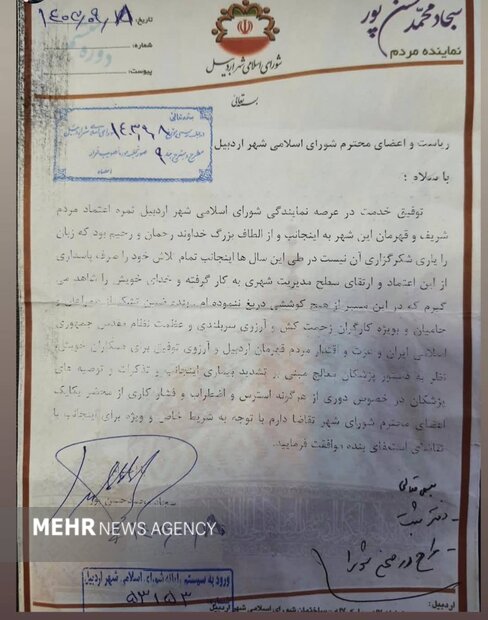 سجاد محمدحسن پور
نماینده مردم
شورای اسلامی شهر اردبیل
تاریخ:
شماره:
پیوست:
دوره ششم
بسمه تعالی
ریاست و اعضای محترم شورای اسلامی شهر اردبیل
با سلام ؛
توفیق خدمت در عرصه نمایندگی شورای اسلامی شهر اردبیل ثمره اعتماد مردم
شریف و قهرمان این شهر به اینجانب و از الطاف بزرگ خداوند رحمان و رحیم بود که زبان
را یارای شکرگزاری آن نیست در طی این سال ها اینجانب تمام تلاش خود را صرف پاسداری
از این اعتماد و ارتقای سطح مدیریت شهری به کار گرفته و خدای خویش را شاهد می
گیرم که در این مسیر از هیچ کوششی دریغ ننموده ام بنده ضمن تشکر از
حامیان و بویژه کارگران زحمت کش و آرزوی سربلندی و عظمت نظام مقدس جمهوری
اسلامی ایران و عزت و اقتدار مردم قهرمان اردبیل و آرزوی توفیق برای همکاران خویش
نظر به دستور پزشکان معالج مبنی بر تشدید بیماری اینجانب و تذکرات و توصیه های
پزشکان در خصوص دوری از هرگونه استرس و اضطراب و فشار کاری از محضر یکایک
اعضای محترم شورای شهر تقاضا دارم با توجه به شرایط خاص و ویژه برای اینجانب با
تقاضای استعفای بنده موافقت فرمایید.
بسمه تعالی
- دفتر ثبت
- طرح در صحن شورا
MEHR NEWS AGENCY
ورود به سیستم رایانه شورای اسلامی شهر اردبیل
۵۳۱۵۳